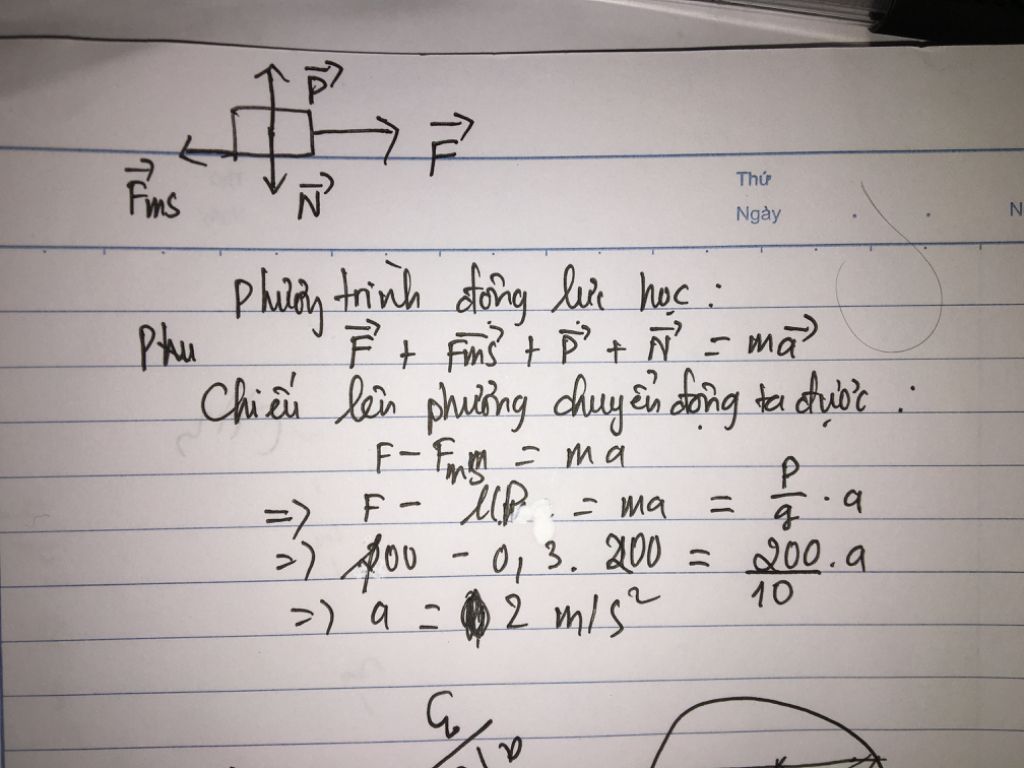 P⃗
F⃗
F⃗ms
N⃗
Thứ
Ngày
N
Phương trình động lực học :
Phu
F⃗ + F⃗ms + P⃗ + N⃗ = ma⃗
Chiếu lên phương chuyển động ta được :
F - Fms = ma
=> F - μP = ma = P/g . a
=> 100 - 0,3. 200 = 200/10 . a
=> a = 2 m/s²